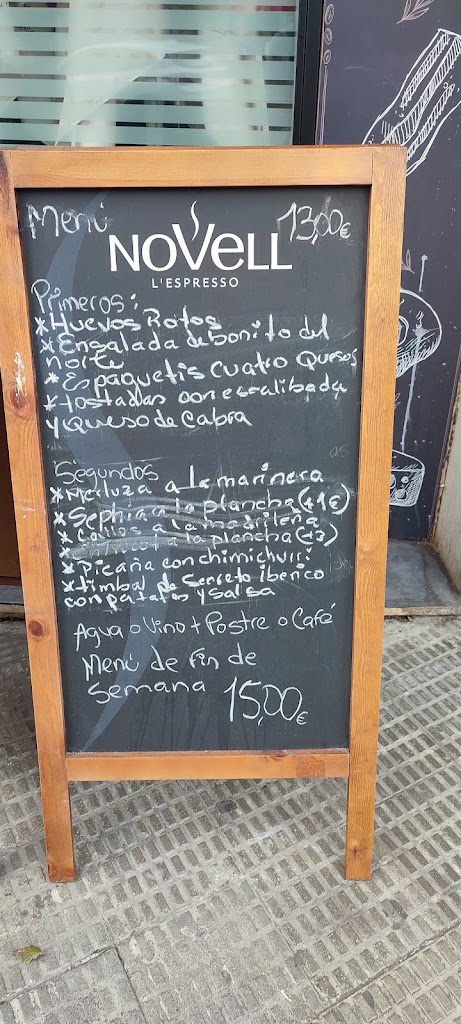 Menú 13,00€
NOVELL
L'ESPRESSO
Primeros:
*Huevos Rotos
*Ensalada de bonito del
norte
*Espaguetis Cuatro Quesos
*tostadas con escalibada
y queso de cabra
Segundos
*Merluza a la marinera
*Sephia a la plancha (+1€)
*Callos a la madrileña
* a la plancha (+3)
*Picaña con chimichurri
*timbal de Secreto iberico
con patatas y salsa
Agua o Vino + Postre o Café
Menú de fin de
semana 15,00€